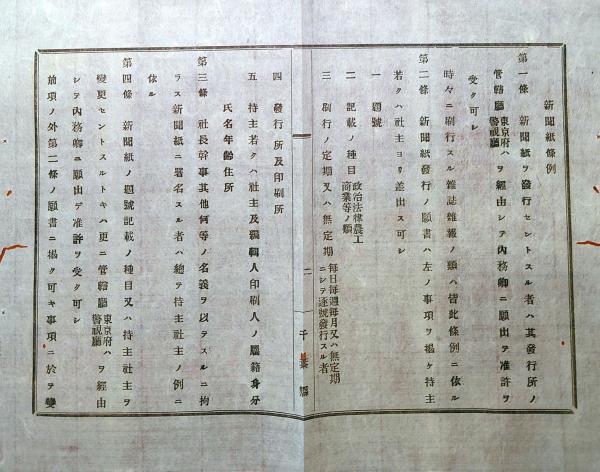 新聞紙條例
第一條　新聞紙ヲ發行セントスル者ハ其發行所ノ
管轄廳東京府ハ警視廳ヲ經由シテ內務卿ニ願出テ准許ヲ
受ク可シ
時々ニ刷行スル雜誌雜報ノ類ハ皆此條例ニ依ル
第二條　新聞紙發行ノ願書ハ左ノ事項ヲ揭ケ持主
若クハ社主ヨリ差出ス可シ
一　題號
二　記載ノ種目政治法律農工商業等ノ類
三　刷行ノ定期又ハ無定期每日每週每月又ハ無定期ニシテ逐號發行スル者
四　發行所及印刷所
五　持主若クハ社主及編輯人印刷人ノ屬籍身分
氏名年齡住所
第三條　社長幹事其他何等ノ名義ヲ以テスルニ拘
ラス新聞紙ニ署名スル者ハ總テ持主社主ノ例ニ
依ル
第四條　新聞紙ノ題號記載ノ種目又ハ持主社主ヲ
變更セントスルトキハ更ニ管轄廳東京府ハ警視廳ヲ經由
シテ內務卿ニ願出テ准許ヲ受ク可シ
前項ノ外第二條ノ願書ニ揭ク可キ事項ニ於テ變
二
千葉縣